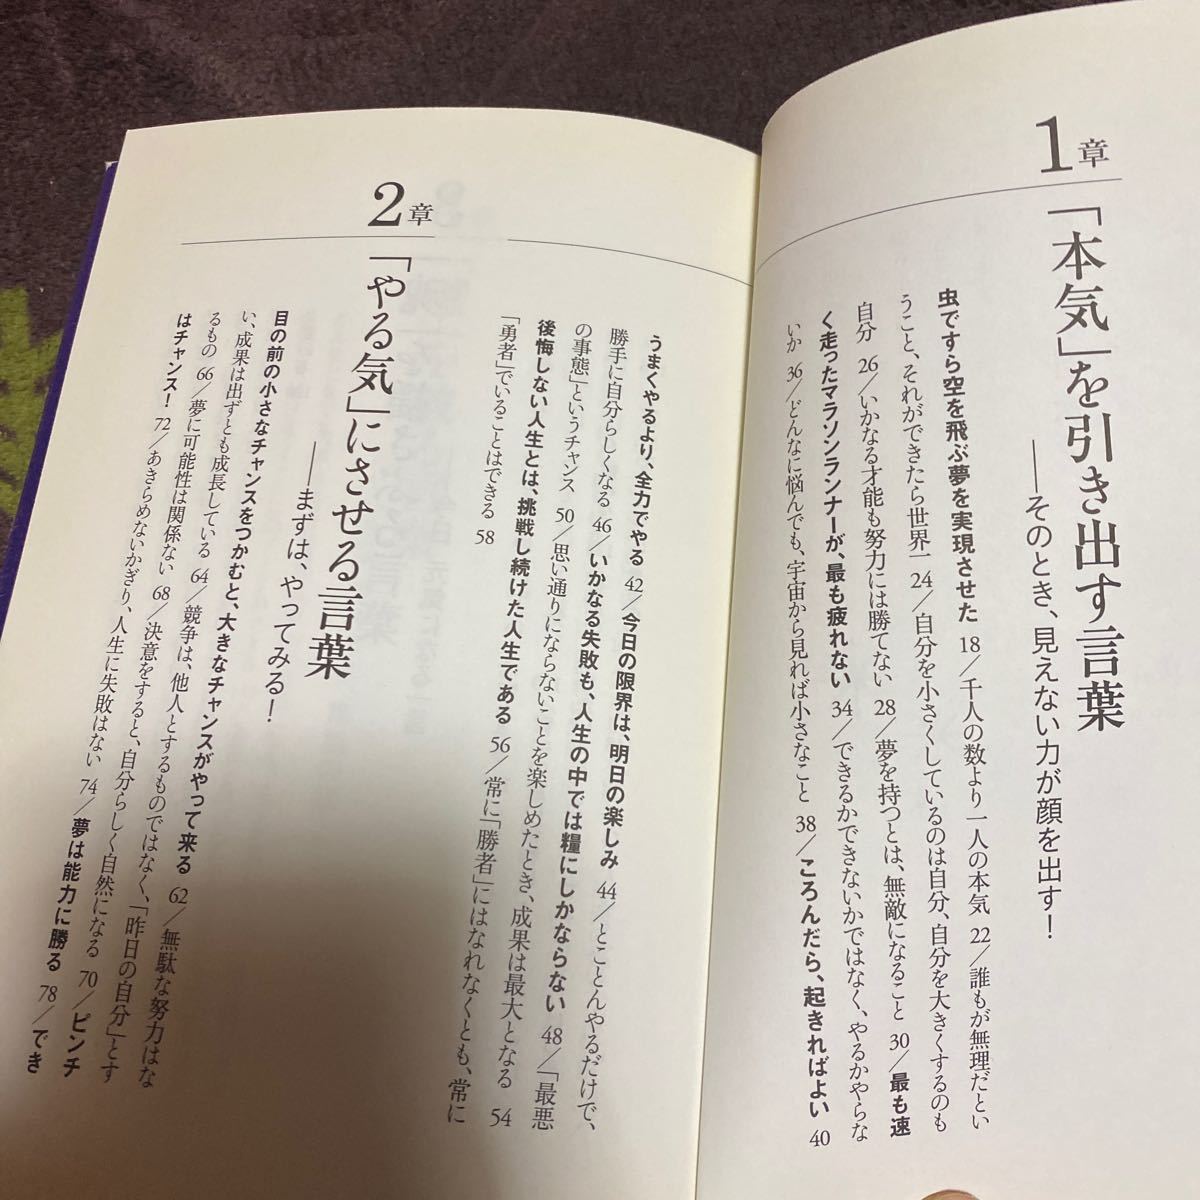 1章
「本気」を引き出す言葉
――そのとき、見えない力が顔を出す！
虫ですら空を飛ぶ夢を実現させた 18／千人の数より一人の本気 22／誰もが無理だとい
うこと、それができたら世界一 24／自分を小さくしているのは自分、自分を大きくするのも
自分 26／いかなる才能も努力には勝てない 28／夢を持つとは、無敵になること 30／最も速
く走ったマラソンランナーが、最も疲れない 34／できるかできないかではなく、やるかやらな
いか 36／どんなに悩んでも、宇宙から見れば小さなこと 38／ころんだら、起きればよい 40
うまくやるより、全力でやる 42／今日の限界は、明日の楽しみ 44／とことんやるだけで、
勝手に自分らしくなる 46／いかなる失敗も、人生の中では糧にしかならない 48／「最悪
の事態」というチャンス 50／思い通りにならないことを楽しめたとき、成果は最大となる 54
後悔しない人生とは、挑戦し続けた人生である 56／常に「勝者」にはなれなくとも、常に
「勇者」でいることはできる 58
2章
「やる気」にさせる言葉
――まずは、やってみる！
目の前の小さなチャンスをつかむと、大きなチャンスがやって来る 62／無駄な努力はな
い、成果は出ずとも成長している 64／競争は、他人とするものではなく、「昨日の自分」とす
るもの 66／夢に可能性は関係ない 68／決意をすると、自分らしく自然になる 70／ピンチ
はチャンス！ 72／あきらめないかぎり、人生に失敗はない 74／夢は能力に勝る 78／でき